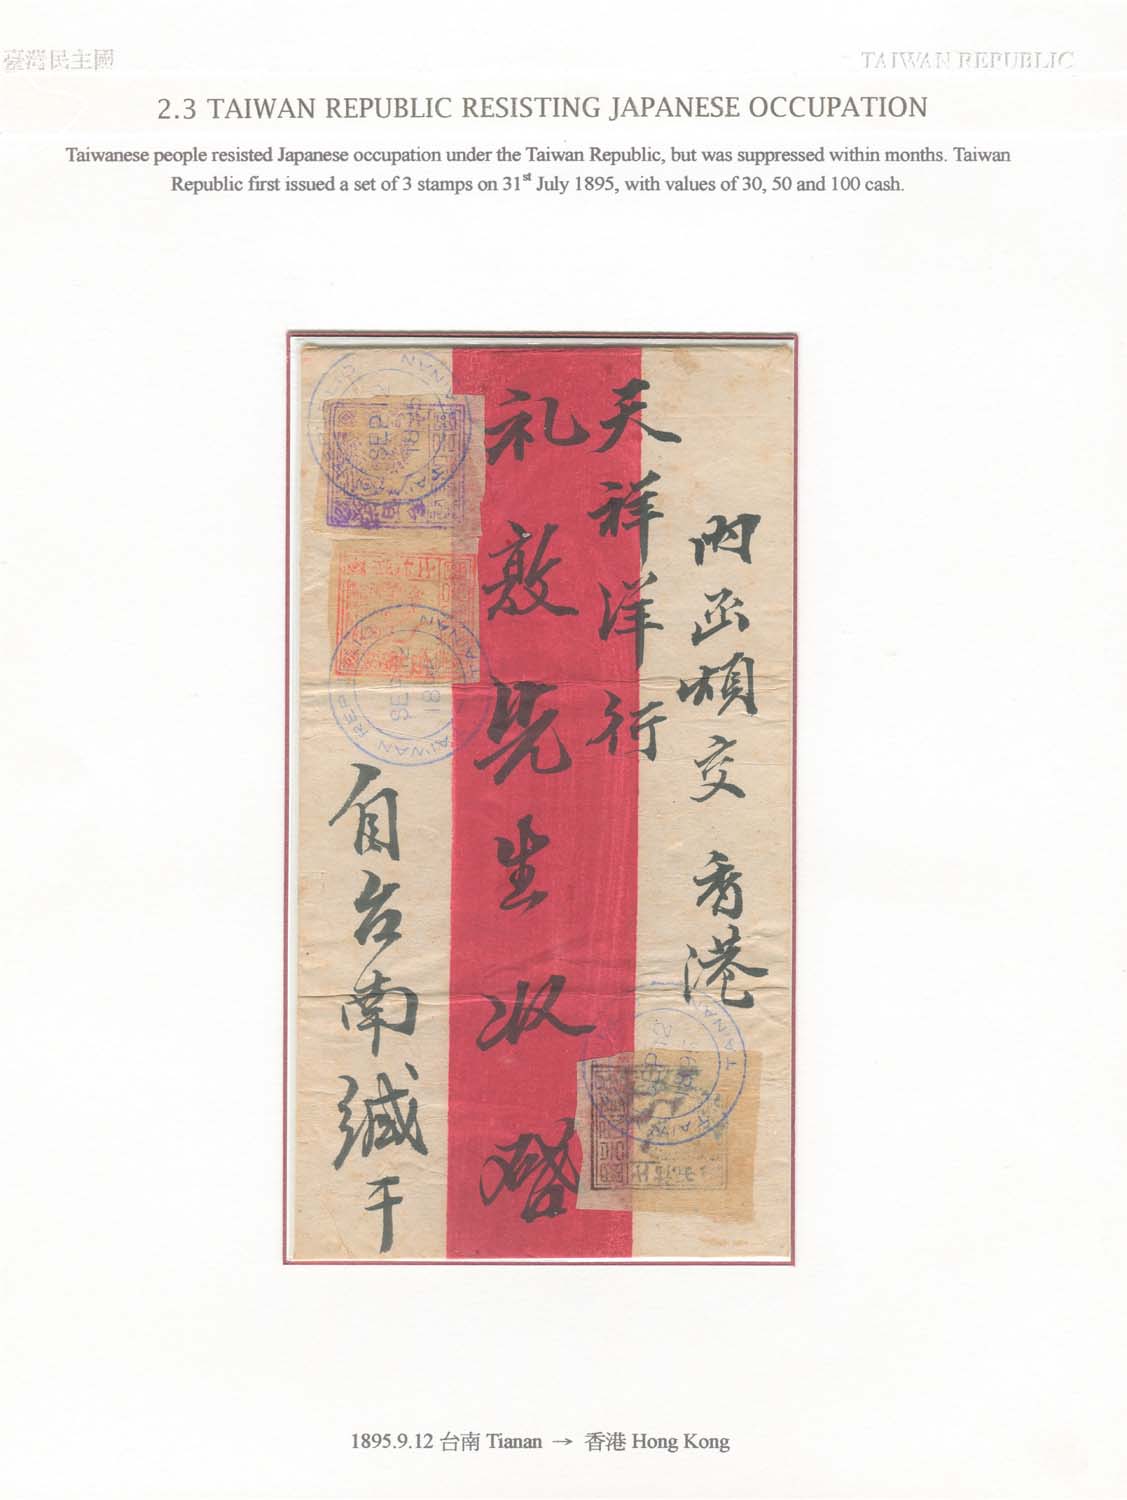 臺灣民主國
TAIWAN REPUBLIC
2.3 TAIWAN REPUBLIC RESISTING JAPANESE OCCUPATION
Taiwanese people resisted Japanese occupation under the Taiwan Republic, but was suppressed within months. Taiwan
Republic first issued a set of 3 stamps on 31st July 1895, with values of 30, 50 and 100 cash.
內函煩交 香港
天祥洋行
礼敦先生收啓
自台南緘干
TAINAN
SEP 12
1895
TAIWAN REP
TAINAN
SEP
189
TAIWAN
TAINAN
1895.9.12 台南 Tianan → 香港 Hong Kong